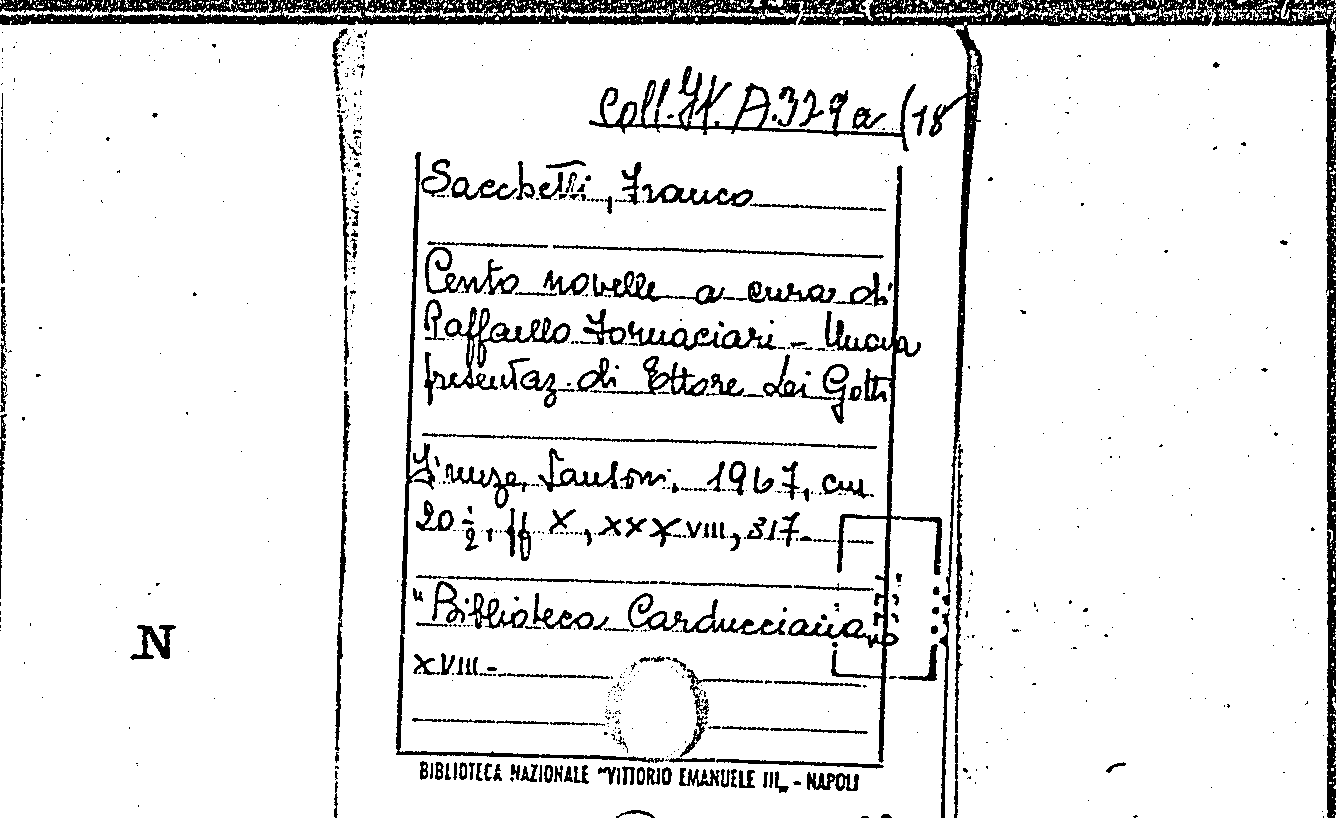 Coll. It. A. 329 a (18
Sacchetti, Franco
Cento novelle a cura di
Raffaello Fornaciari - Nuova
presentaz. di Ettore Li Gotti
Firenze, Sansoni, 1967, cm
20 ½, ff X, XXXVIII, 317.
"Biblioteca Carducciana"
XVIII -
N
BIBLIOTECA NAZIONALE "VITTORIO EMANUELE III„ - NAPOLI